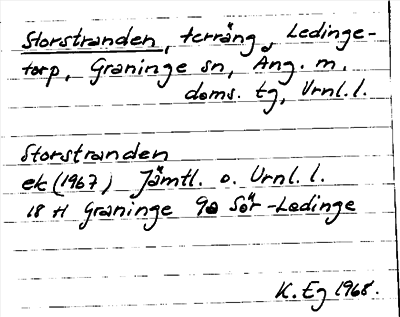 Storstranden, terräng, Ledinge-
torp, Graninge sn, Ång. m.
doms. tg, Vrnl. l.
Storstranden
ek (1967) Jämtl. o. Vrnl. l.
18 H Graninge 9a Sör-Ledinge
K. Eg 1968.